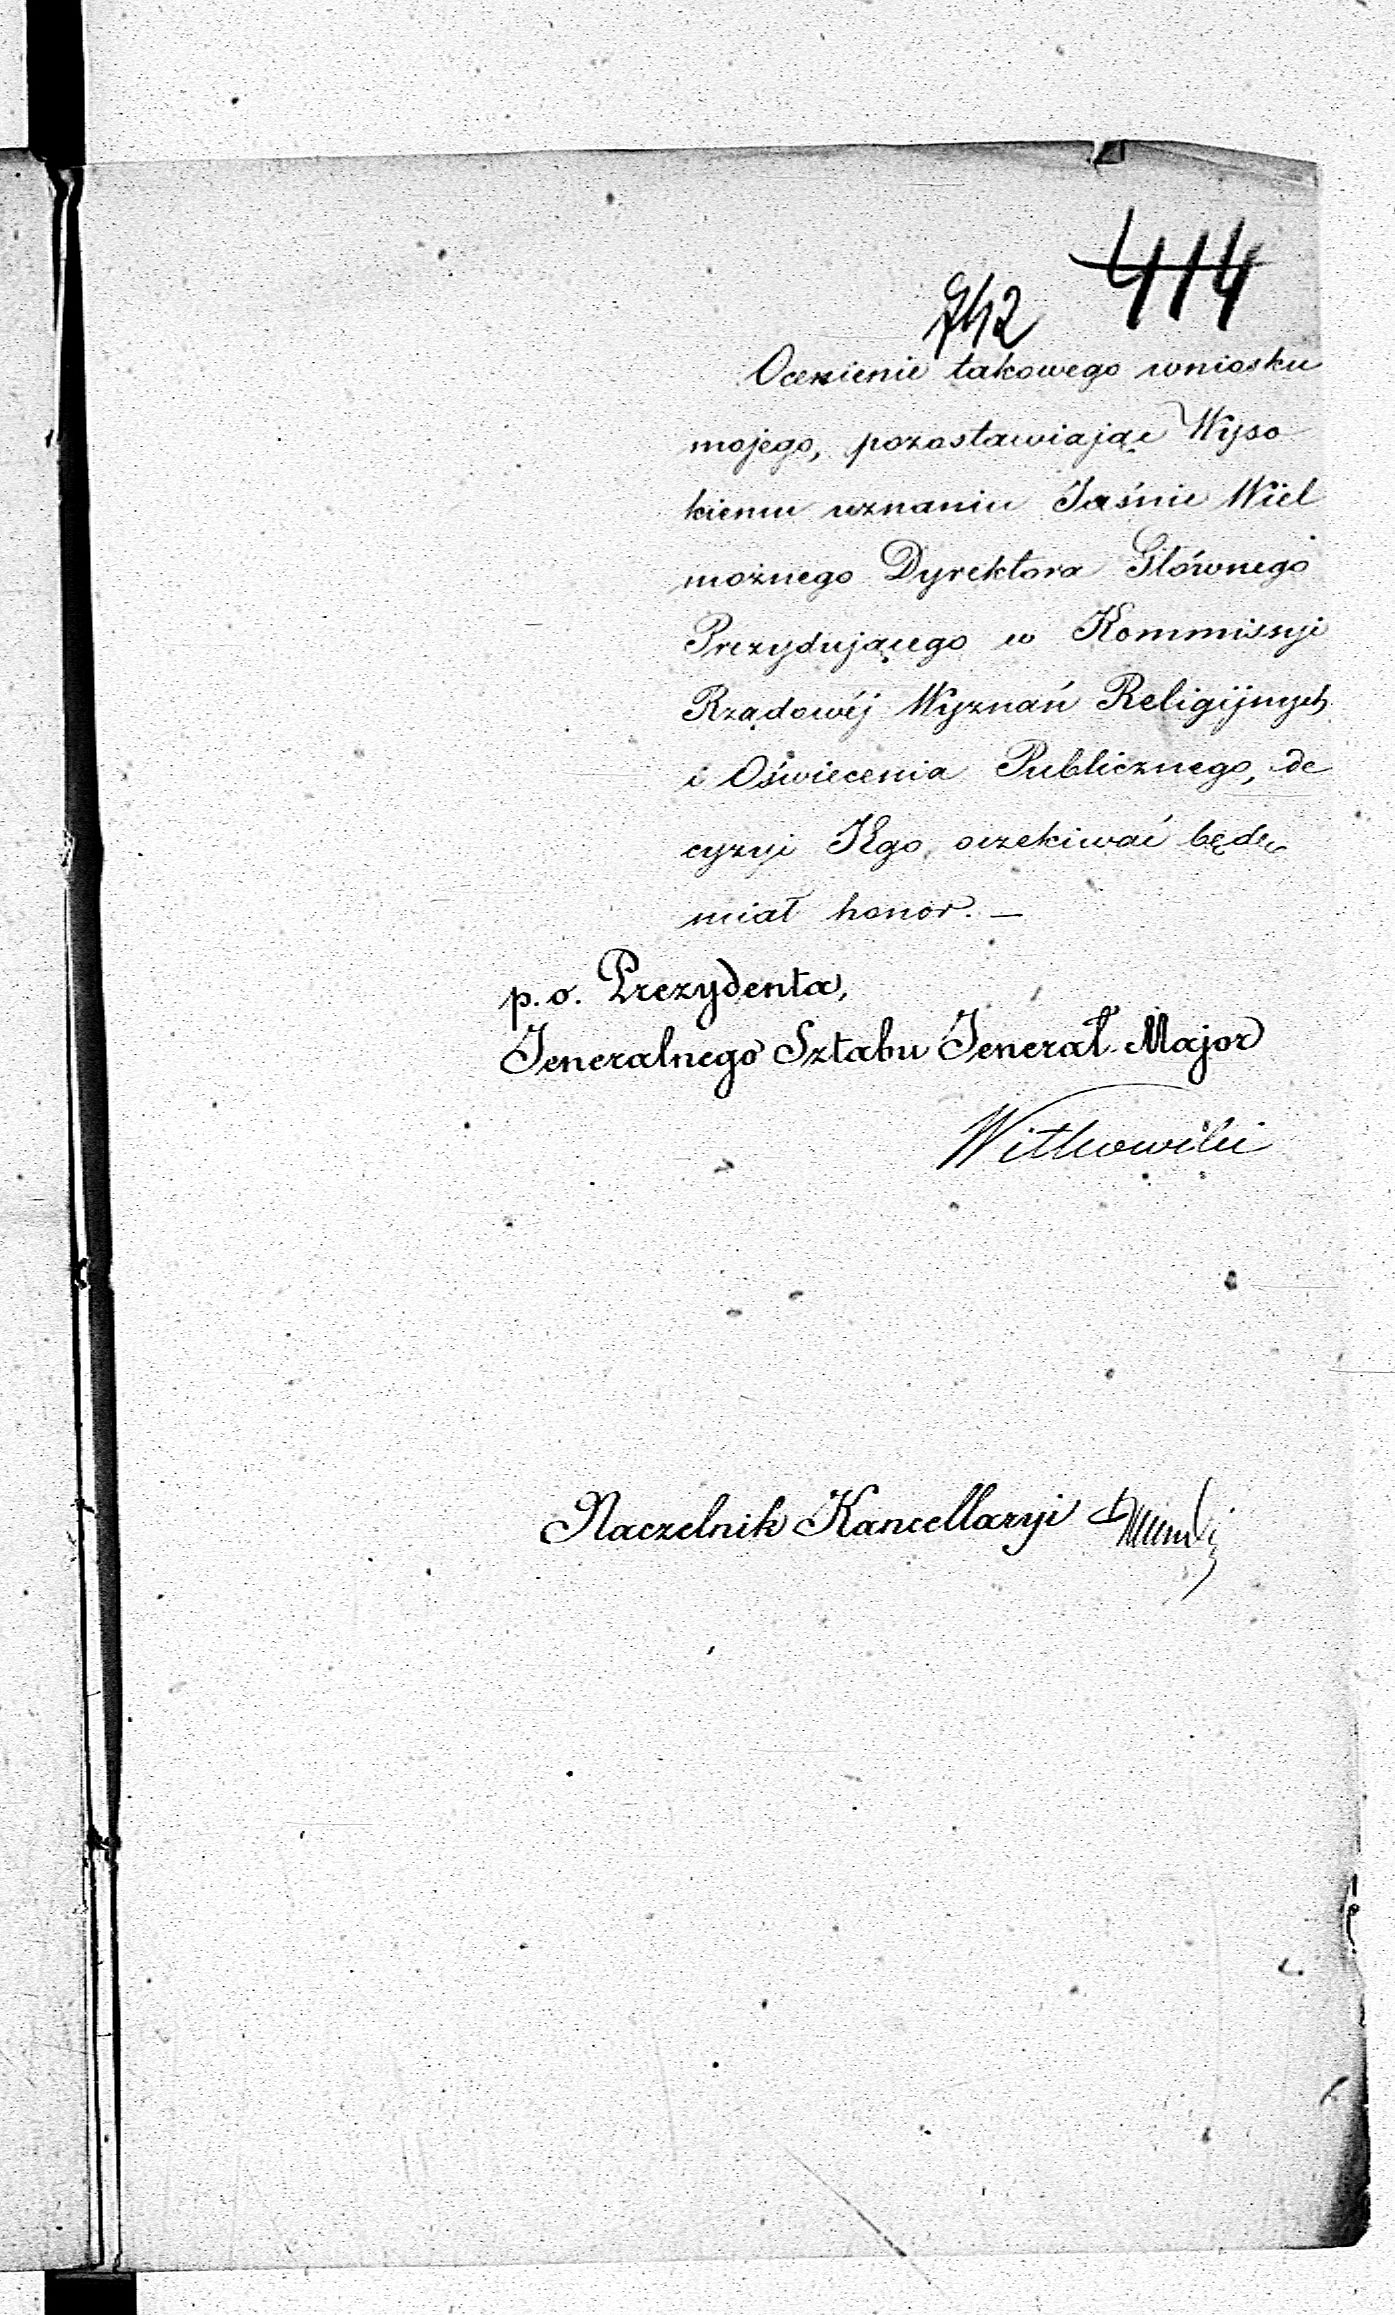 414
742
Ocenienie takowego wniosku
mojego, pozostawiając Wyso
kiemu uznaniu Jaśnie Wiel
możnego Dyrektora Głównego
Prezydującego w Kommissyi
Rządowéj Wyznań Religijnych
i Oświecenia Publicznego, de
cyzyi JEgo, oczekiwać będę
miał honor. —
p. o. Prezydenta,
Jeneralnego Sztabu Jenerał Major
Witkowski
Naczelnik Kancellaryi